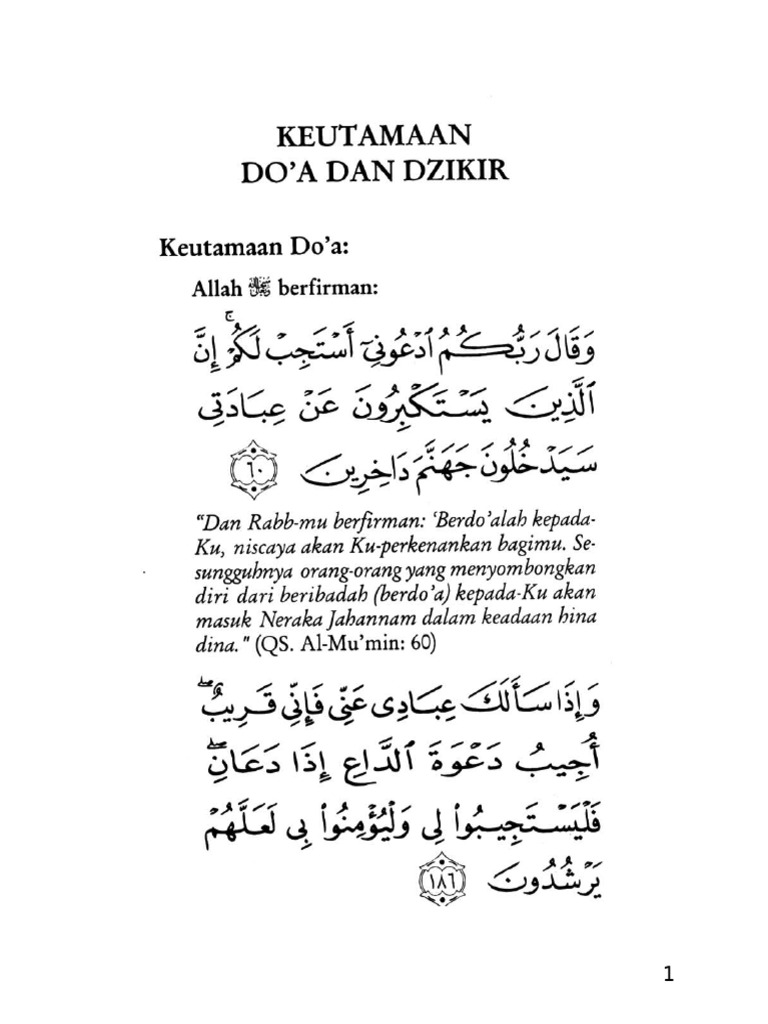 KEUTAMAAN
DO'A DAN DZIKIR
Keutamaan Do'a:
Allah ﷻ berfirman:
وَقَالَ رَبُّكُمُ ٱدْعُونِىٓ أَسْتَجِبْ لَكُمْ ۚ إِنَّ
ٱلَّذِينَ يَسْتَكْبِرُونَ عَنْ عِبَادَتِى
سَيَدْخُلُونَ جَهَنَّمَ دَاخِرِينَ ٦٠
"Dan Rabb-mu berfirman: 'Berdo'alah kepada-
Ku, niscaya akan Ku-perkenankan bagimu. Se-
sungguhnya orang-orang yang menyombongkan
diri dari beribadah (berdo'a) kepada-Ku akan
masuk Neraka Jahannam dalam keadaan hina
dina." (QS. Al-Mu'min: 60)
وَإِذَا سَأَلَكَ عِبَادِى عَنِّى فَإِنِّى قَرِيبٌ ۖ
أُجِيبُ دَعْوَةَ ٱلدَّاعِ إِذَا دَعَانِ ۖ
فَلْيَسْتَجِيبُوا۟ لِى وَلْيُؤْمِنُوا۟ بِى لَعَلَّهُمْ
يَرْشُدُونَ ١٨٦
1